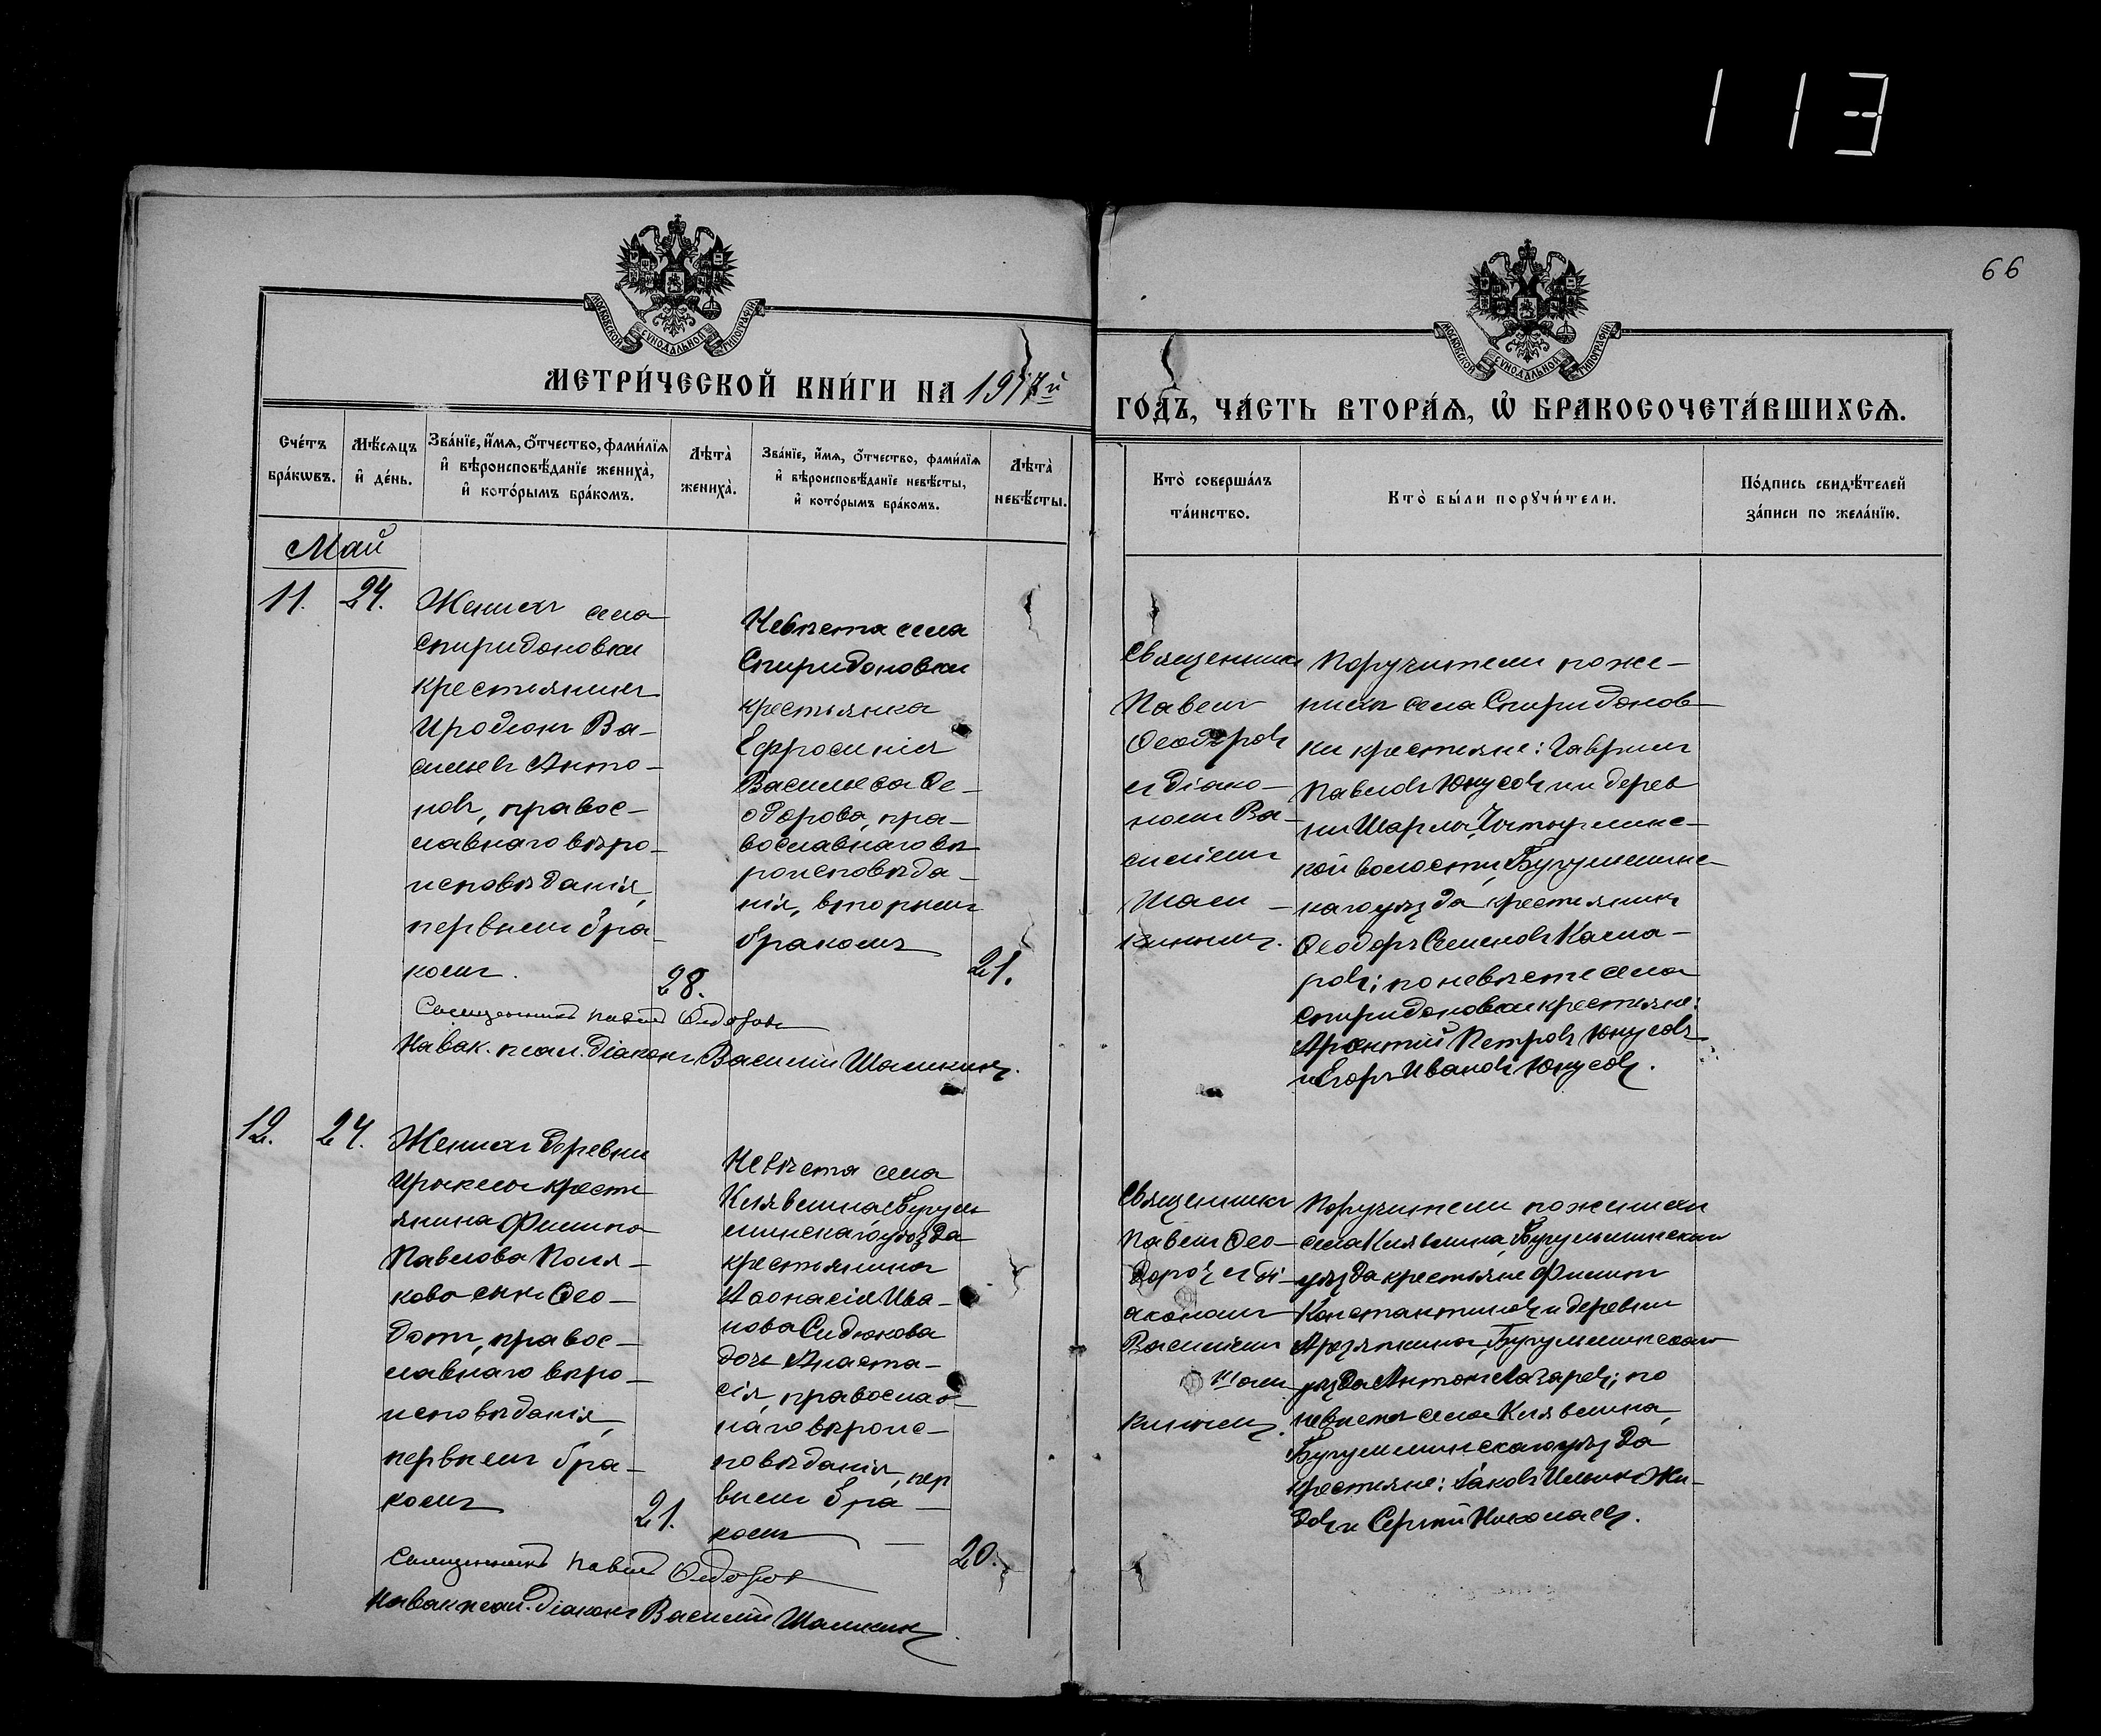 113
66
МОСКОВСКОЙ СѴНОДАЛЬНОЙ ТИПОГРАФІИ
МОСКОВСКОЙ СѴНОДАЛЬНОЙ ТИПОГРАФІИ
МЕТРИ́ЧЕСКОЙ КНИ́ГИ НА 1917й
ГО́ДЪ, ЧА́СТЬ ВТОРА́Ѧ, Ѽ БРАКОСОЧЕТА́ВШИХСѦ.
Сче́тъ бра́кѡвъ.
Мѣ́сѧцъ и҆ де́нь.
Зва́нїе, и҆́мѧ, ѻ҆́тчество, фами́лїѧ и҆ вѣроисповѣ́данїе жениха̀, и҆ кото́рымъ бра́комъ.
Лѣта̀ жениха̀.
Зва́нїе, и҆́мѧ, ѻ҆́тчество, фами́лїѧ и҆ вѣроисповѣ́данїе невѣ́сты, и҆ кото́рымъ бра́комъ.
Лѣта̀ невѣ́сты.
Кто̀ соверша́лъ та́инство.
Кто̀ бы́ли порꙋчи́тели.
По́дпись свидѣ́телей за́писи по жела́нїю.
Май
11.
24.
Женихъ села
Спиридоновки
крестьянинъ
Иродіонъ Ва-
сильевъ Анто-
новъ, правос-
лавнаго вѣро-
исповѣданія,
первымъ бра-
комъ.
28.
Невѣста села
Спиридоновки
крестьянка
Ефросинія
Васильева Ѳе-
одорова, пра-
вославнаго вѣ
роисповѣда-
нія, вторымъ
бракомъ
21.
Священникъ
Павелъ
Ѳеодоровъ
съ діако-
номъ Ва-
силіемъ
Шаш-
кинымъ.
Поручители по же-
ниху села Спиридонов-
ки крестьяне: Гавріилъ
Павловъ Юнусовъ и дерев
ни Шарлы,
кой волости, Бугульминс-
каго уѣзда крестьянинъ
Ѳеодоръ Семеновъ
ровъ; по невѣсте села
Спиридоновки крестьяне:
Петровъ Юнусовъ
и Егоръ Ивановъ Юнусовъ.
Священникъ Павелъ Ѳедоровъ
На вак. псал. діаконъ Василій Шашкинъ.
12.
24.
Женихъ деревни
крестъ
янина Филипа
Павлова Поля-
кова сынъ Ѳео-
дотъ, правос-
лавнаго вѣро-
исповѣданія,
первымъ бра-
комъ
21.
Невѣста села
Клявлина, Бугуль
минскаго уѣзда
крестьянина
Аѳонасія Ива-
нова Сидюкова
дочь Анаста-
сія, православ-
наго вѣроис-
повѣданія, пер
вымъ бра-
комъ
20.
Священникъ
Павелъ Ѳео-
доровъ съ ді-
акономъ
Василіемъ
Шаш-
кинымъ.
Поручители по жениху
села Клявлина, Бугульминскаго
уѣзда крестьяне Филипъ
Константиновъ и деревни
Бугульминскаго
уѣзда Антонъ Лазаревъ; по
невѣсте села Клявлина,
Бугульминскаго уѣзда
крестьяне: Іаковъ Ильинъ Жи-
довъ и Сергій Николаевъ.
Священникъ Павелъ Ѳедоровъ
На вак псал. діаконъ Василій Шашкинъ.